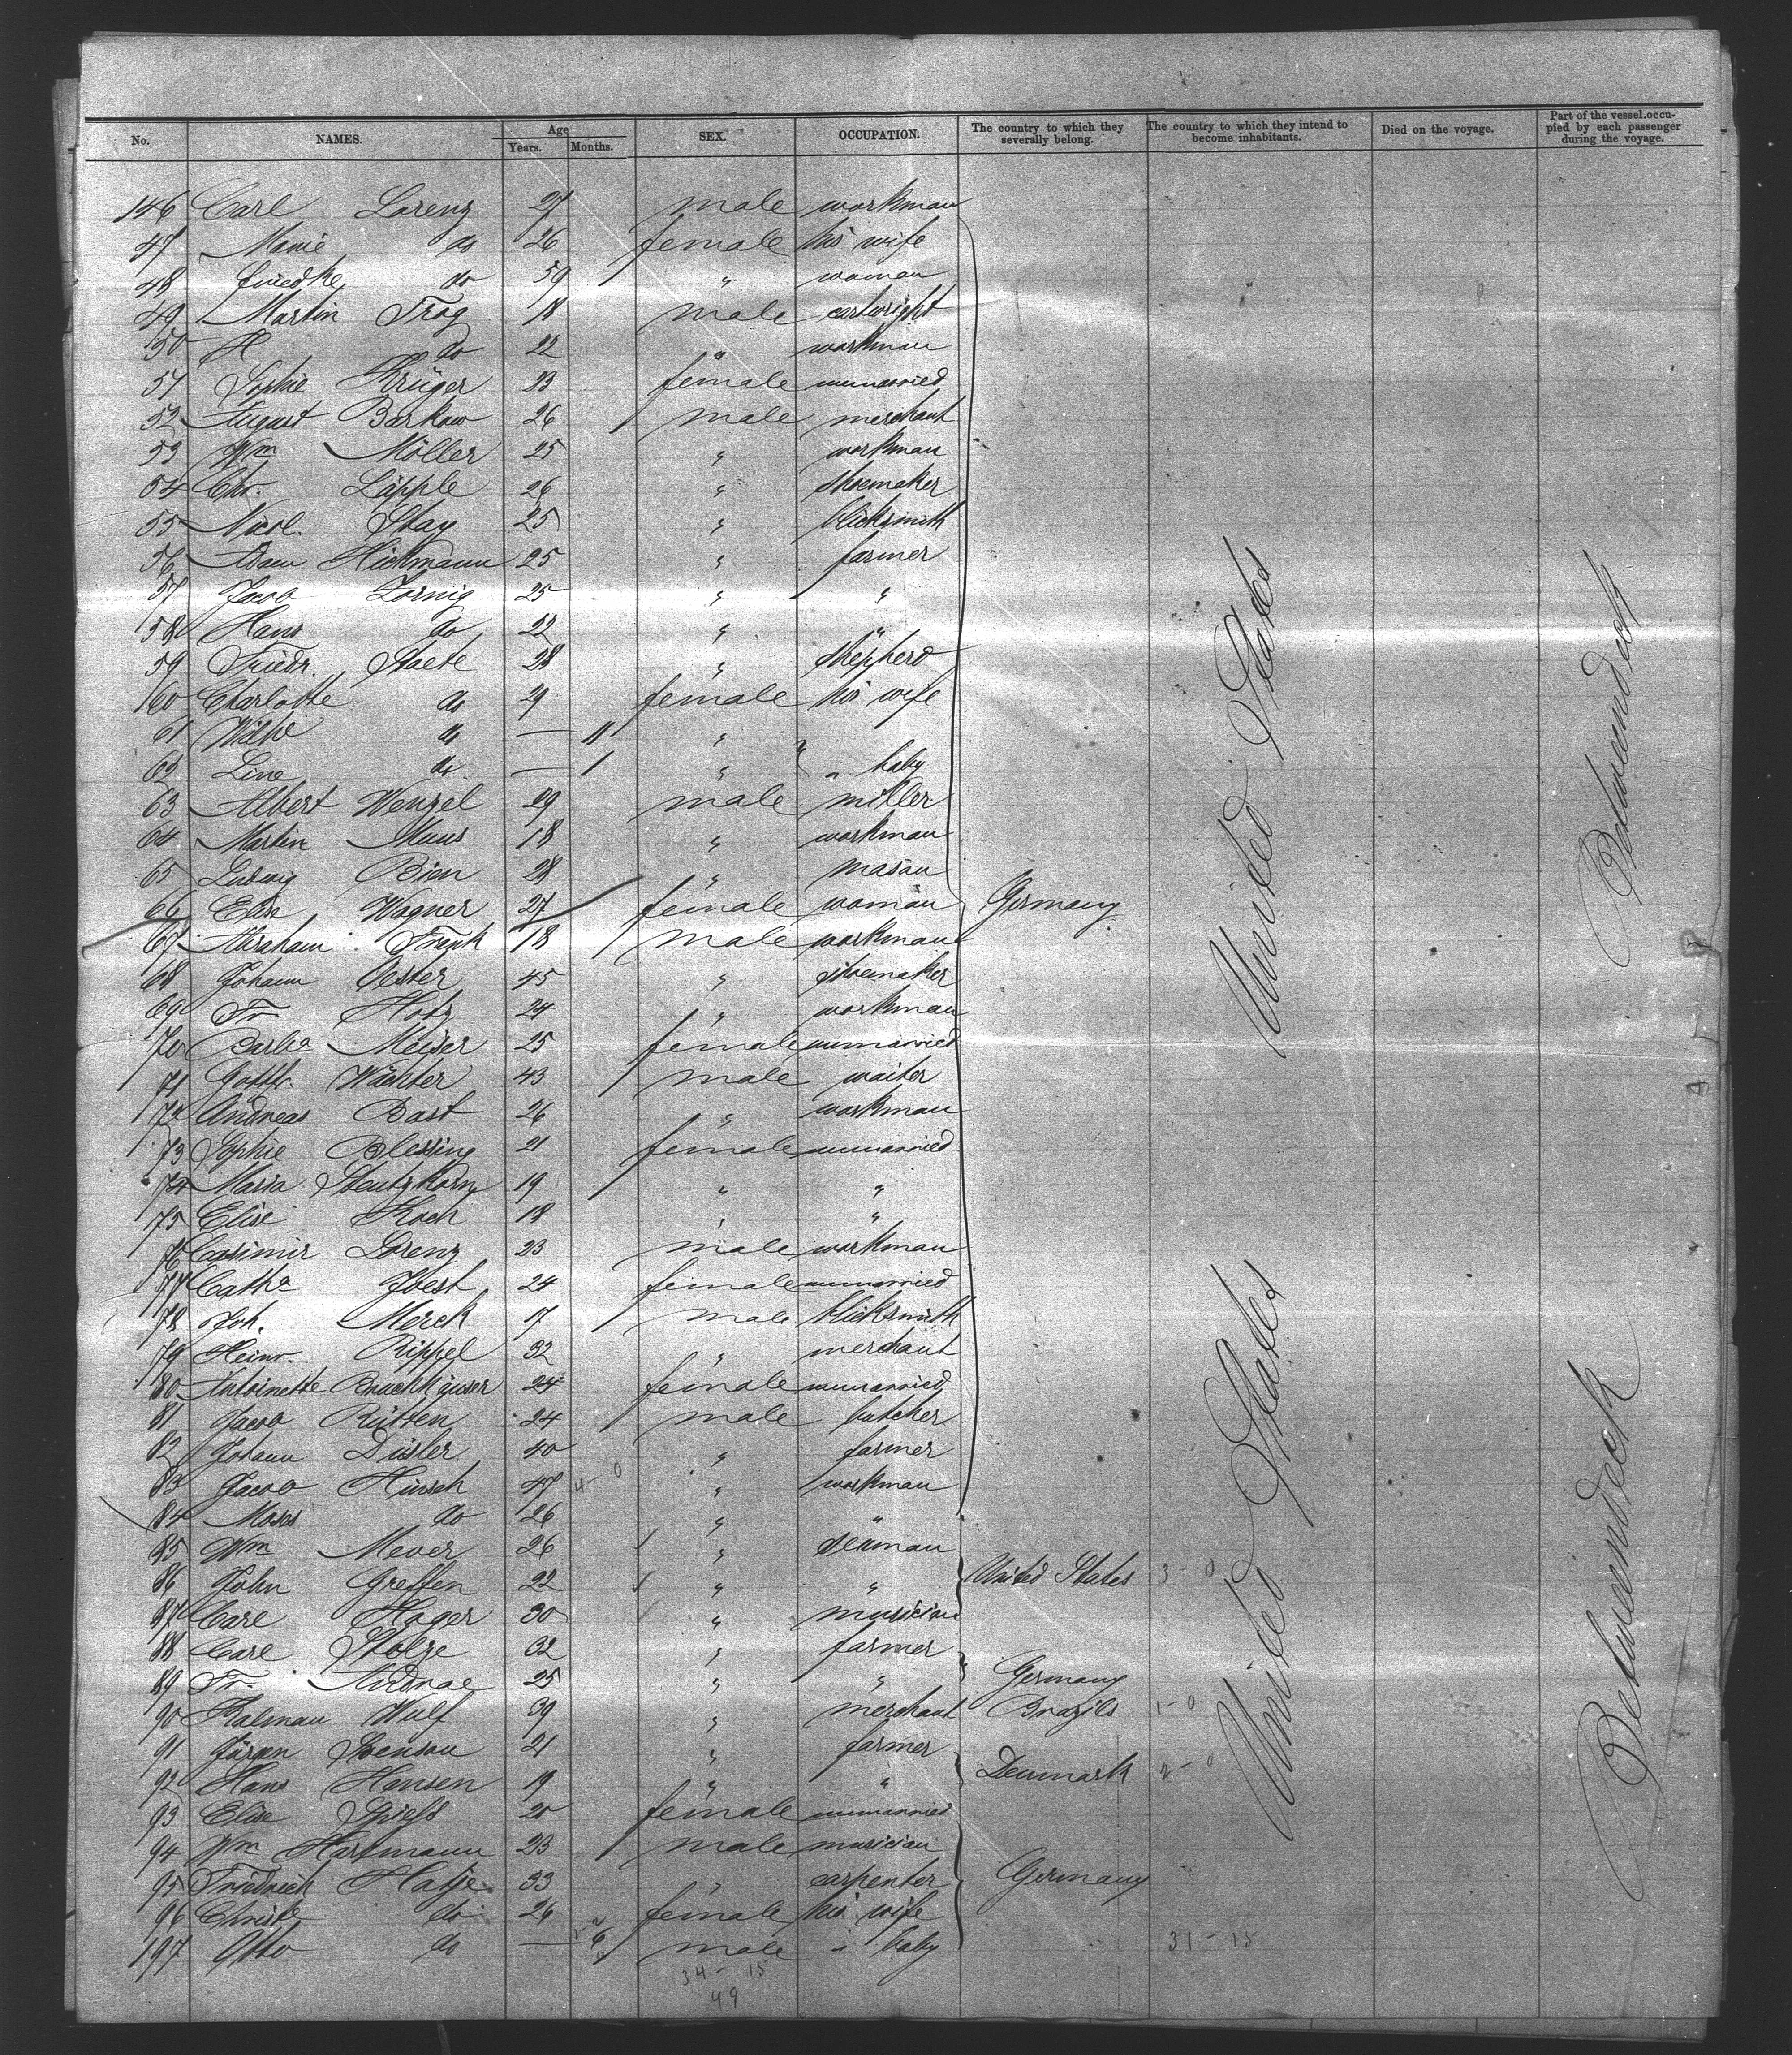 No. NAMES. Age Years. Months. SEX. OCCUPATION. The country to which they severally belong. The country to which they intend to become inhabitants. Died on the voyage. Part of the vessel occupied by each passenger during the voyage.
146 Carl Lorenz 27 male workman
47 Marie do 26 female his wife
48 do 59 " woman
49 Martin Trog 18 male cartwright
50 H do 22 " workman
51 Sophie Krüger 23 female unmarried
52 August Barkow 26 male merchant
53 Wm Möller 25 " workman
54 Chr. Läpple 26 " shoemaker
55 Nicol. Stay 25 " blicksmith
56 Adam Hickmann 25 " farmer
57 Jacob Zornig 25 " "
58 Hans do 22 " "
59 Friedr. Staete 28 " shepherd
160 Charlotte do 29 female his wife
61 Wilhe do — 11 "
62 Line do — 1 " " baby
63 Albert Wenzel 29 male miller
64 Martin Muus 18 " workman
65 Ludwig Bien 28 " mason
66 Elise Wagner 27 female woman Germany
67 Abraham Frank 18 male workman
68 Johann Oester 45 " shoemaker
69 Fr Hotz 24 " workman
70 Barba Meijer 25 female unmarried
71 Gottfr. Wächter 43 male waiter
72 Andreas Bast 26 " workman
73 Sophie Blessing 21 female unmarried
74 Maria Steutzkorn 19 " "
75 Elise Koch 18 " "
76 Casimir Lorenz 23 male workman
77 Catha Jbest 24 female unmarried
78 Joh. Merck 17 male blicksmith
79 Heinr. Rippel 32 " merchant
80 Antoinette Bruckhäuser 24 female unmarried
81 Jacob Rütten 24 male butcher
82 Johann Disler 40 " farmer
83 Jacob Hirsch 47 4-0 " workman
84 Moses do 26 " "
85 Wm Meyer 26 " seaman
86 John Greffen 22 " " United States 3-0
87 Carl Hager 30 " musician
88 Carl Stolze 32 " farmer
89 Fr. Andrae 25 " " Germany
90 Kalman Wulf 39 " merchant Brazils 1-0
91 Jürgen Svenson 21 " farmer
92 Hans Hansen 19 " " Denmark 2-0
93 Elise Spiess 20 female unmarried
94 Wm Hartmann 23 male musician
95 Friedrich Hatje 33 " carpenter Germany
96 Christe do 26 female his wife
197 Otto do — 6 male " baby 31-15
34-15
49
United States
United States
United States
Betweendeck
Betweendeck